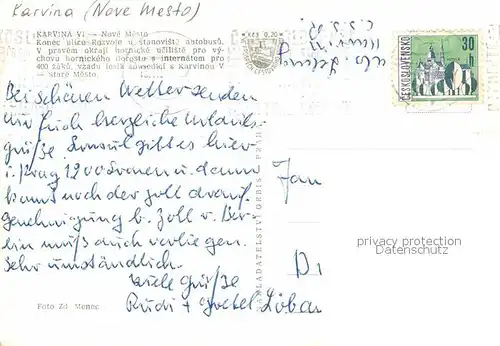 Karvina (Nove Mesto)
KARVINÁ VI — Nové Město
Konec ulice Rozvoje u stanoviště autobusů.
V pravém okraji hornické učiliště pro vý-
chovu hornického dorostu s internátem pro
400 žáků, vzadu lesík sousedící s Karvinou V
— staré Město.
Kčs 0,20
ČESKOSLOVENSKO
30
h
Bei schönen Wetter senden
wir Euch herzliche Urlaubs-
grüße. gibt es hier
i. Prag 1200 Kronen u. dann
kommt noch der Zoll drauf.
genehmigung b. Zoll v. Ber-
lin muß auch vorliegen.
Sehr umständlich.
Viele Grüße
Rudi + Gretel
Jan
Di
Löbau
NAKLADATELSTVÍ ORBIS
privacy protection
Datenschutz
Foto Zd. Menec